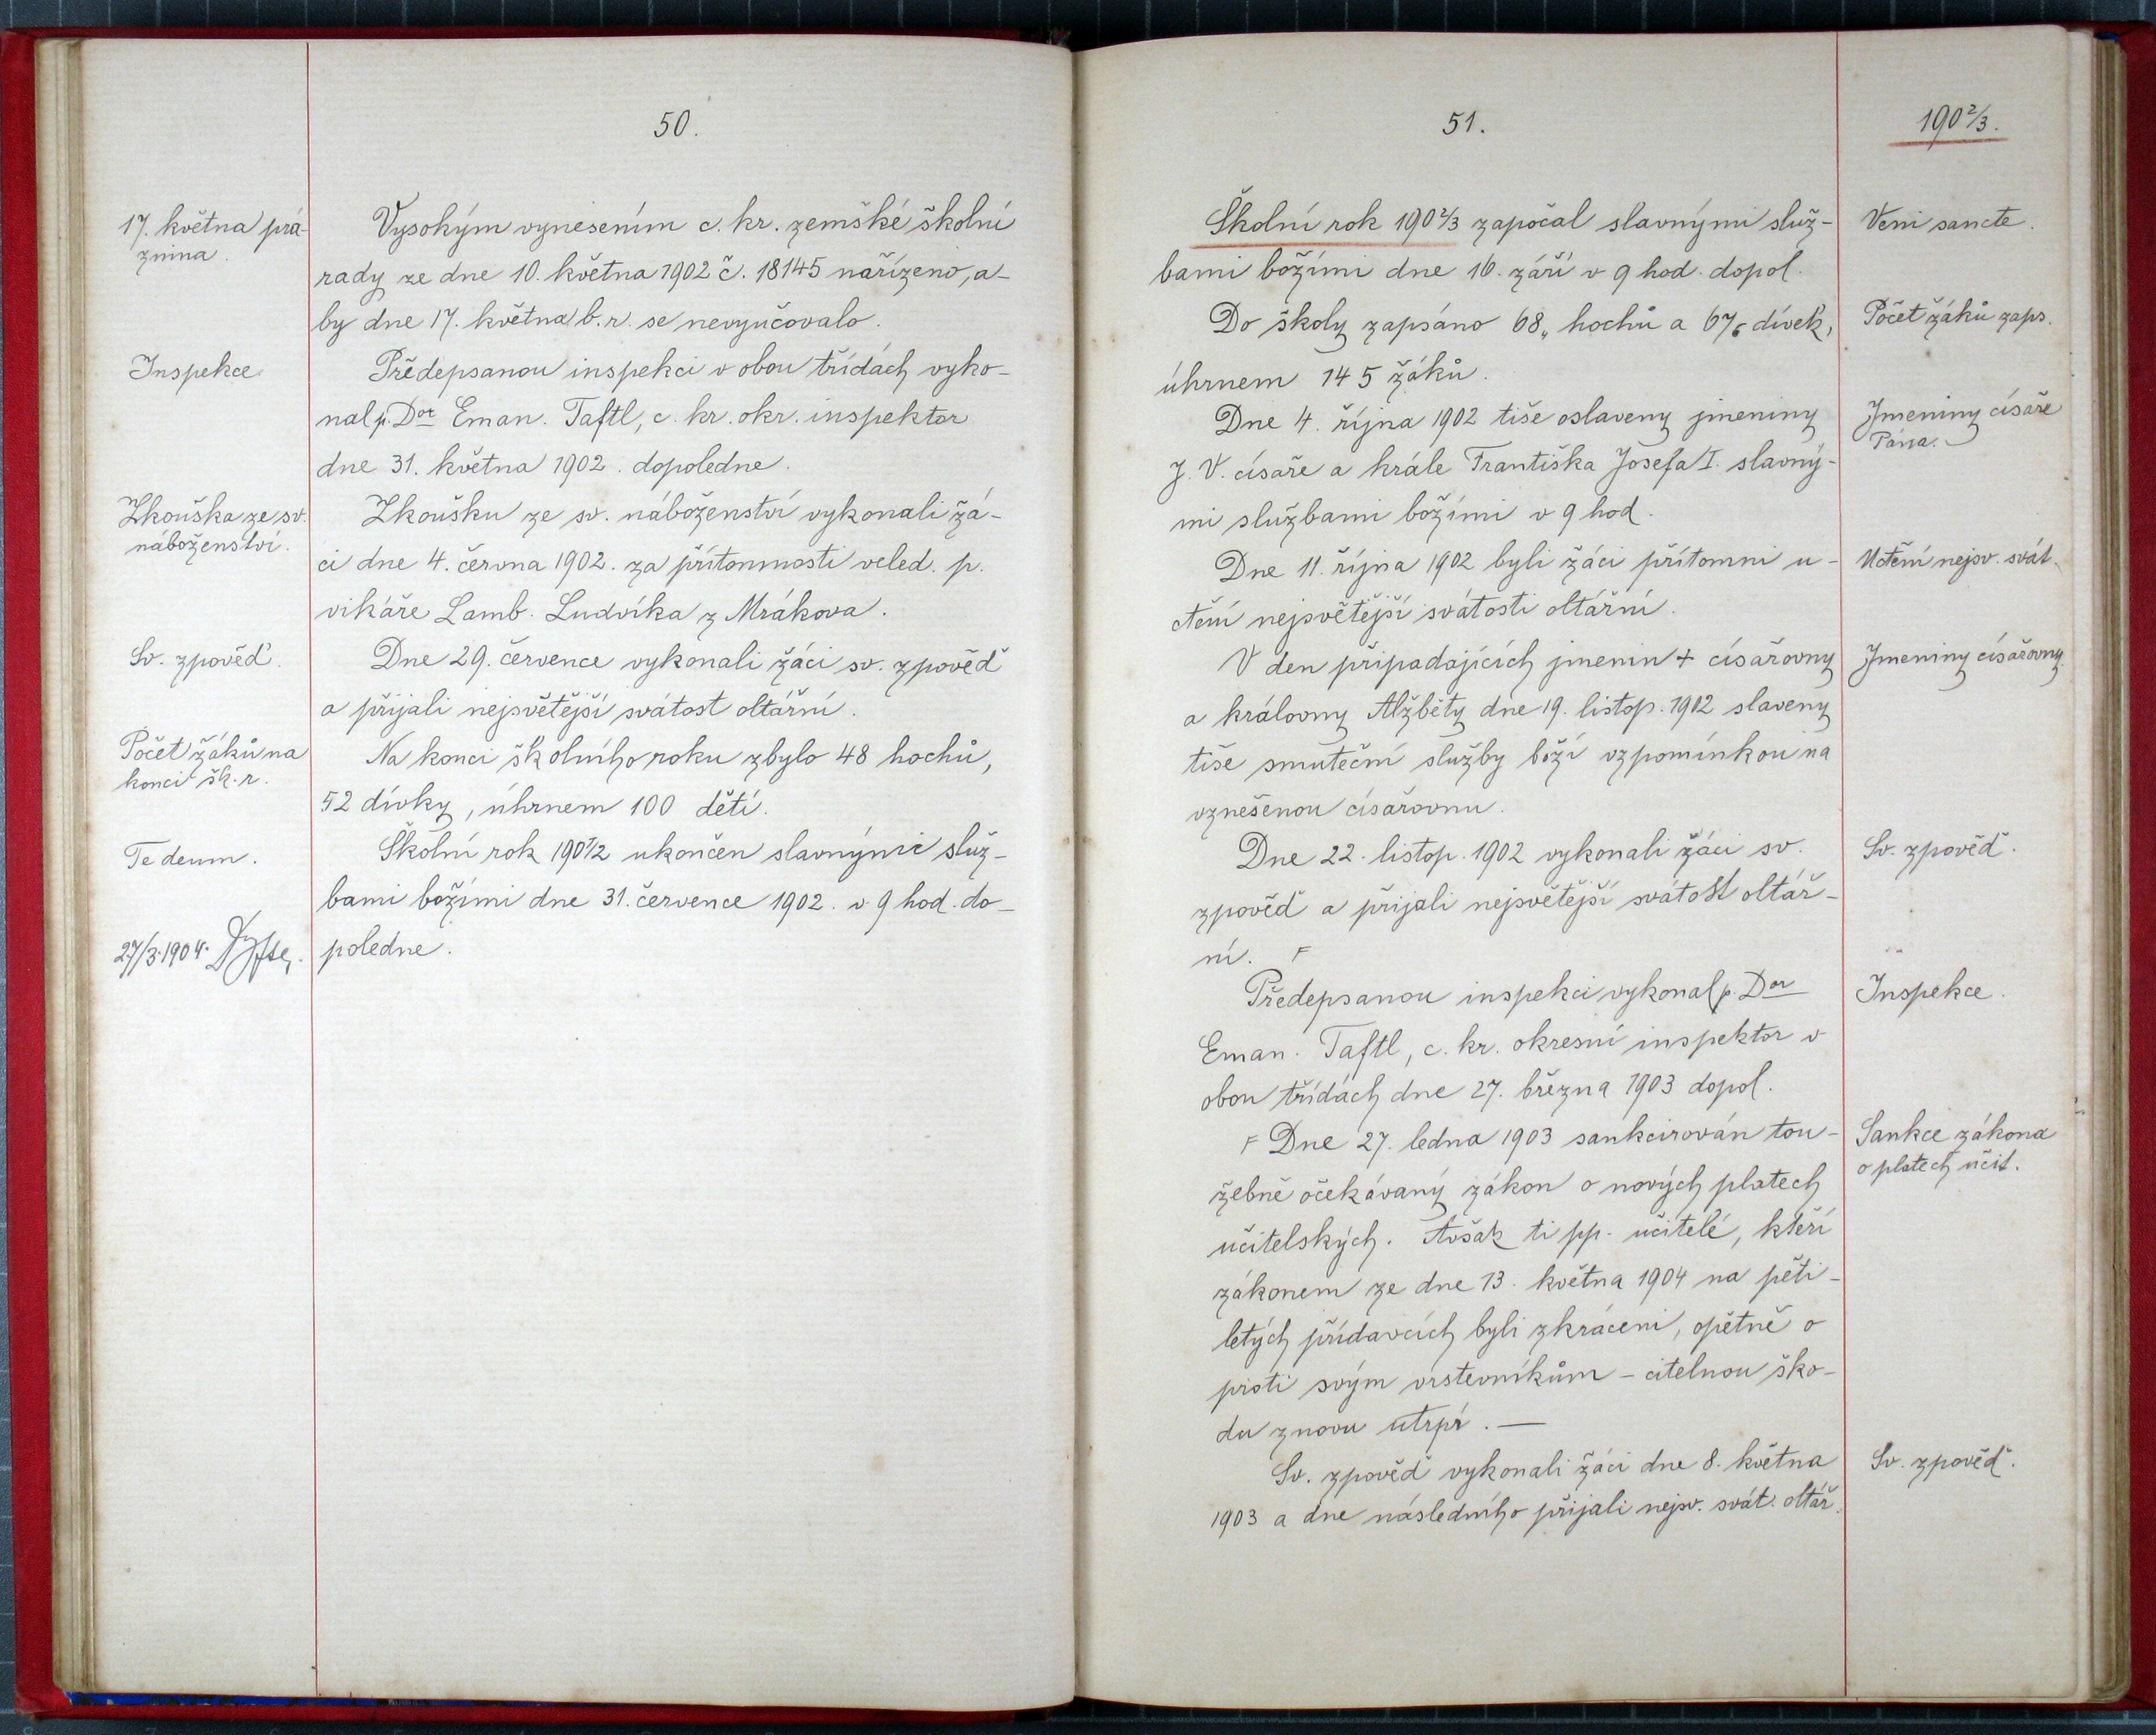 50.
17. května prá-
znina.
Vysokým vynesením c. kr. zemské školní
rady ze dne 10. května 1902 č. 18145 nařízeno, a-
by dne 17. května b. r. se nevyučovalo.
Inspekce
Předepsanou inspekci v obou třídách vyko-
nal p. Dor Eman. Taftl, c. kr. okr. inspektor
dne 31. května 1902. dopoledne.
Zkouška ze sv.
náboženství.
Zkoušku ze sv. náboženství vykonali žá-
ci dne 4. června 1902. za přítomnosti veled. p.
vikáře Lamb. Ludvíka z Mrákova.
Sv. zpověď.
Dne 29. července vykonali žáci sv. zpověď
a přijali nejsvětější svátost oltářní.
Počet žáků na
konci šk. r.
Na konci školního roku zbylo 48 hochů,
52 dívky, úhrnem 100 dětí.
Te deum.
Školní rok 1901/2 ukončen slavnými služ-
bami božími dne 31. července 1902. v 9 hod. do-
poledne.
27/3.1904.
51.
1902/3.
Školní rok 1902/3 započal slavnými služ-
bami božími dne 16. září v 9 hod. dopol.
Veni sancte.
Do školy zapsáno 68 hochů a 67 dívek,
úhrnem 145 žáků.
Počet žáků zaps.
Dne 4. října 1902 tiše oslaveny jmeniny
J. V. císaře a krále Františka Josefa I. slavný-
mi službami božími v 9 hod.
Jmeniny císaře
Pána.
Dne 11. října 1902 byli žáci přítomni u-
ctění nejsvětější svátosti oltářní.
Uctění nejsv. svát.
V den připadajících jmenin + císařovny
a královny Alžběty dne 19. listop. 1902 slaveny
tiše smuteční služby boží vzpomínkou na
vznešenou císařovnu.
Jmeniny císařovny.
Dne 22. listop. 1902 vykonali žáci sv.
zpověď a přijali nejsvětější svátost oltář-
ní. F
Sv. zpověď.
Předepsanou inspekci vykonal p. Dor
Eman. Taftl, c. kr. okresní inspektor v
obou třídách dne 27. března 1903 dopol.
Inspekce.
F Dne 27. ledna 1903 sankcirován tou-
žebně očekávaný zákon o nových platech
učitelských. Avšak ti pp. učitelé, kteří
zákonem ze dne 13. května 1904 na pěti-
letých přídavcích byli zkráceni, opětně o
proti svým vrstevníkům – citelnou ško-
du znovu utrpí. —
Sankce zákona
o platech učit.
Sv. zpověď vykonali žáci dne 8. května
1903 a dne následního přijali nejsv. svát. oltář.
Sv. zpověď.